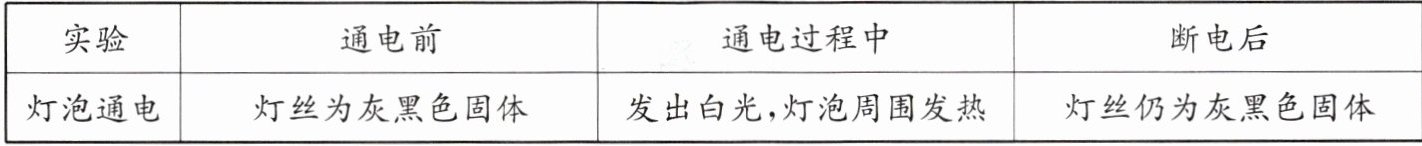 实验 通电前 通电过程中 断电后
灯泡通电 灯丝为灰黑色固体 发出白光,灯泡周围发热 灯丝仍为灰黑色固体